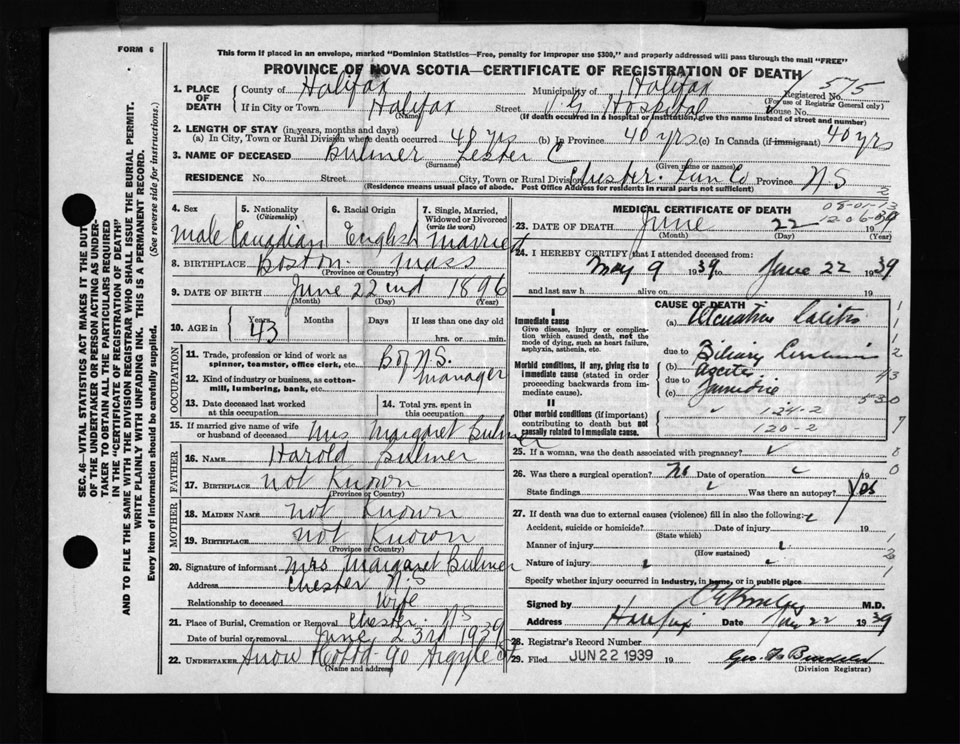 FORM 6
This form if placed in an envelope, marked "Dominion Statistics—Free, penalty for improper use $300," and properly addressed will pass through the mail "FREE"
PROVINCE OF NOVA SCOTIA—CERTIFICATE OF REGISTRATION OF DEATH
1. PLACE OF DEATH County of Halifax Municipality of Halifax Registered No. 575
(For use of Registrar General only)
If in City or Town Halifax Street V G Hospital House No.
(Name) (If death occurred in a hospital or institution, give the name instead of street and number)
2. LENGTH OF STAY (in years, months and days)
(a) In City, Town or Rural Division where death occurred 40 yrs (b) In Province 40 yrs (c) In Canada (if immigrant) 40 yrs
3. NAME OF DECEASED Bulmer Lester C
(Surname) (Given name or names)
RESIDENCE No. Street City, Town or Rural Division Chester Lun Co Province N S
(Residence means usual place of abode. Post Office Address for residents in rural parts not sufficient)
4. Sex 5. Nationality (Citizenship) 6. Racial Origin 7. Single, Married, Widowed or Divorced (write the word)
Male Canadian English Married
8. BIRTHPLACE Boston Mass
(Province or Country)
9. DATE OF BIRTH June 22nd 1896
(Month) (Day) (Year)
10. AGE in Years Months Days If less than one day old
43 hrs. or min.
OCCUPATION
11. Trade, profession or kind of work as spinner, teamster, office clerk, etc. B of N.S. manager
12. Kind of industry or business, as cotton-mill, lumbering, bank, etc.
13. Date deceased last worked at this occupation 14. Total yrs. spent in this occupation
15. If married give name of wife or husband of deceased Mrs Margaret Bulmer
FATHER
16. Name Harold Bulmer
17. Birthplace not Known
(Province or Country)
MOTHER
18. MAIDEN NAME not Known
19. BIRTHPLACE not Known
(Province or Country)
20. Signature of informant Mrs Margaret Bulmer
Address Chester N.S
Relationship to deceased Wife
21. Place of Burial, Cremation or Removal Chester NS
Date of burial or removal June 23rd 1939
22. UNDERTAKER Snow Co Ltd 90 Argyle St
(Name and address)
MEDICAL CERTIFICATE OF DEATH
23. DATE OF DEATH June 22 1939
(Month) (Day) (Year)
24. I HEREBY CERTIFY that I attended deceased from:
May 9 1939 to June 22 1939
and last saw h alive on 19
CAUSE OF DEATH
I
Immediate cause
Give disease, injury or complication which caused death, not the mode of dying, such as heart failure, asphyxia, asthenia, etc.
(a) Colitis
due to
Morbid conditions, if any, giving rise to immediate cause (stated in order proceeding backwards from immediate cause).
(b) Biliary Cirrhosis
Ascites
due to
(c) Jaundice
II
Other morbid conditions (if important) contributing to death but not causally related to immediate cause.
124-2
120-2
25. If a woman, was the death associated with pregnancy?
26. Was there a surgical operation? No Date of operation 19
State findings Was there an autopsy? Yes
27. If death was due to external causes (violence) fill in also the following:
Accident, suicide or homicide? Date of injury 19
(State which)
Manner of injury
(How sustained)
Nature of injury
Specify whether injury occurred in industry, in home, or in public place
Signed by M.D.
Address Halifax Date 22 1939
28. Registrar's Record Number
29. Filed JUN 22 1939 19
(Division Registrar)
SEC. 46—VITAL STATISTICS ACT MAKES IT THE DUTY
OF THE UNDERTAKER OR PERSON ACTING AS UNDERTAKER TO OBTAIN ALL THE PARTICULARS REQUIRED
IN THE "CERTIFICATE OF REGISTRATION OF DEATH"
AND TO FILE THE SAME WITH THE DIVISION REGISTRAR WHO SHALL ISSUE THE BURIAL PERMIT.
WRITE PLAINLY WITH UNFADING INK. THIS IS A PERMANENT RECORD.
Every item of information should be carefully supplied. (See reverse side for instructions.)